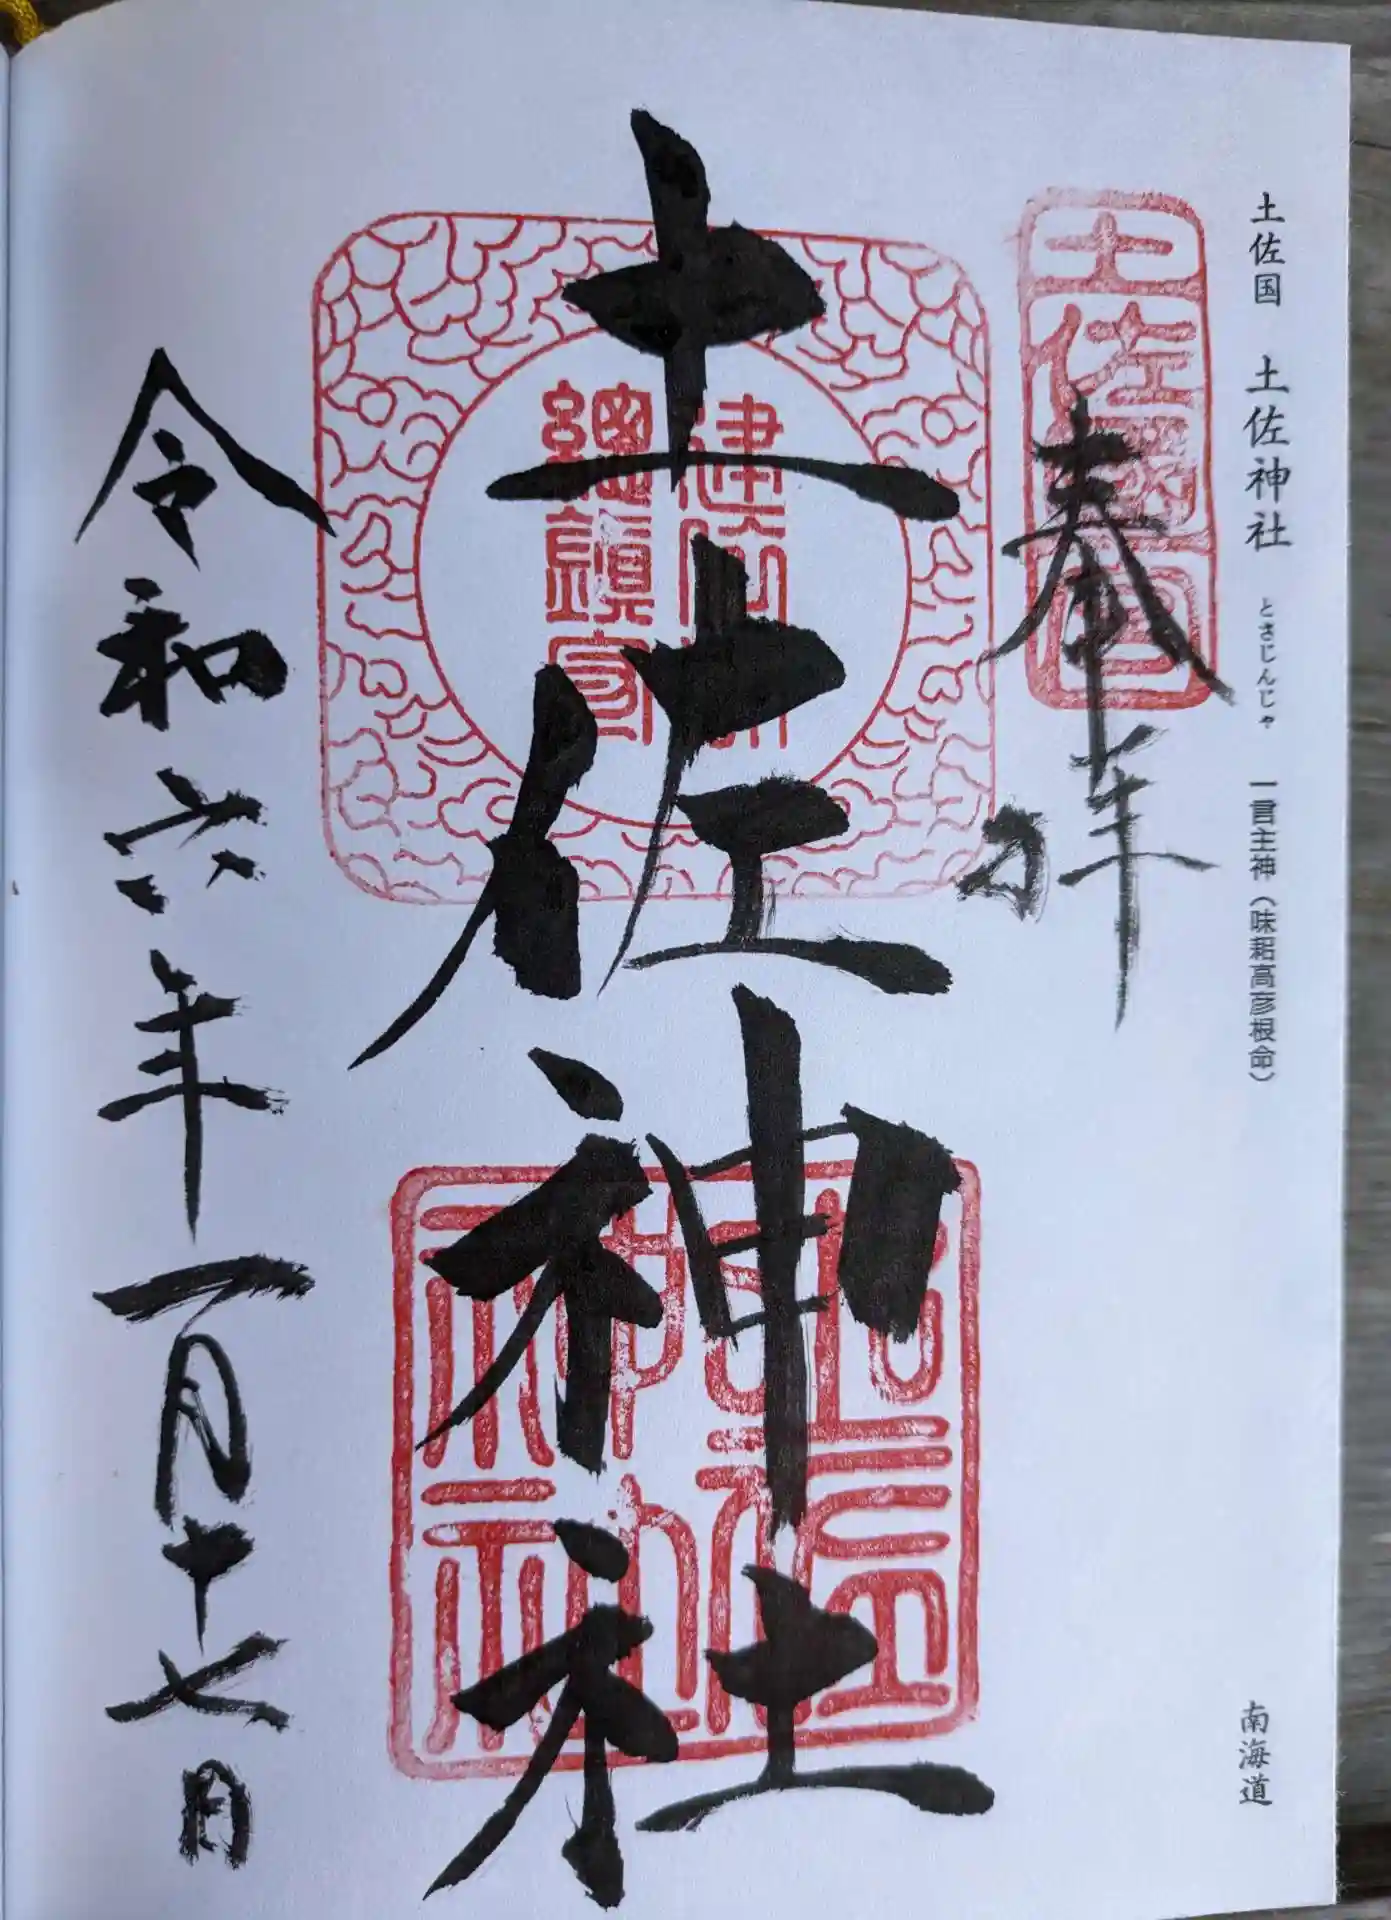 土佐国　土佐神社　とさじんじゃ　一言主神（味耜高彦根命）
南海道
奉拝
土佐國一宮
土佐神社
總鎮守
土佐神社
令和六年一月十七日